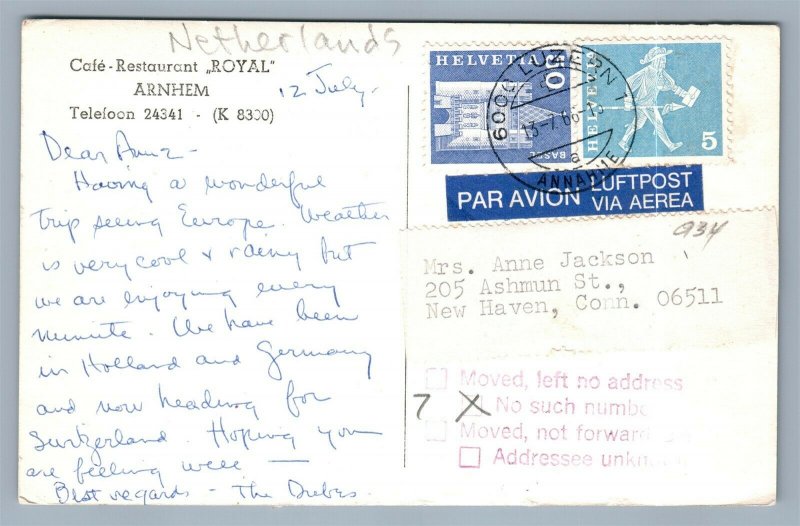 Netherlands
Café-Restaurant „ROYAL”
ARNHEM
Telefoon 24341 - (K 8300)
12 July-
Dear Anne -
Having a wonderful
trip seeing Europe. Weather
is very cool & rainy but
we are enjoying every
minute. We have been
in Holland and Germany
and now heading for
Switzerland. Hoping you
are feeling well —
Best regards - The Dubes
HELVETIA
BASEL
HELVETIA
5
6000 LUZERN 1
13-7.66-
a
ANNAHME
PAR AVION
LUFTPOST
VIA AEREA
934
Mrs. Anne Jackson
205 Ashmun St.,
New Haven, Conn. 06511
Moved, left no address
7 X No such numbe
Moved, not forward
Addressee unkn